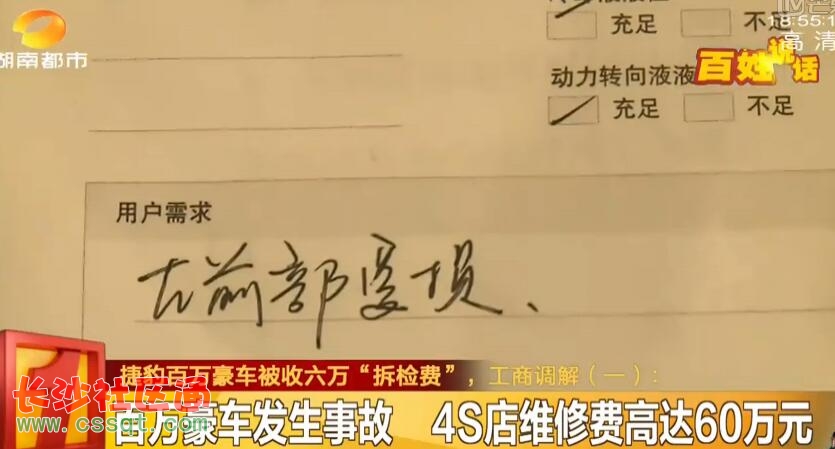 充足 不足
18:55:1
高清
湖南都市
百姓说话
动力转向液液
充足 不足
用户需求
左前部受损、
捷豹百万豪车被收六万“拆检费”，工商调解（一）：
长沙社区通
百万豪车发生事故 4S店维修费高达60万元
www.cssqt.com